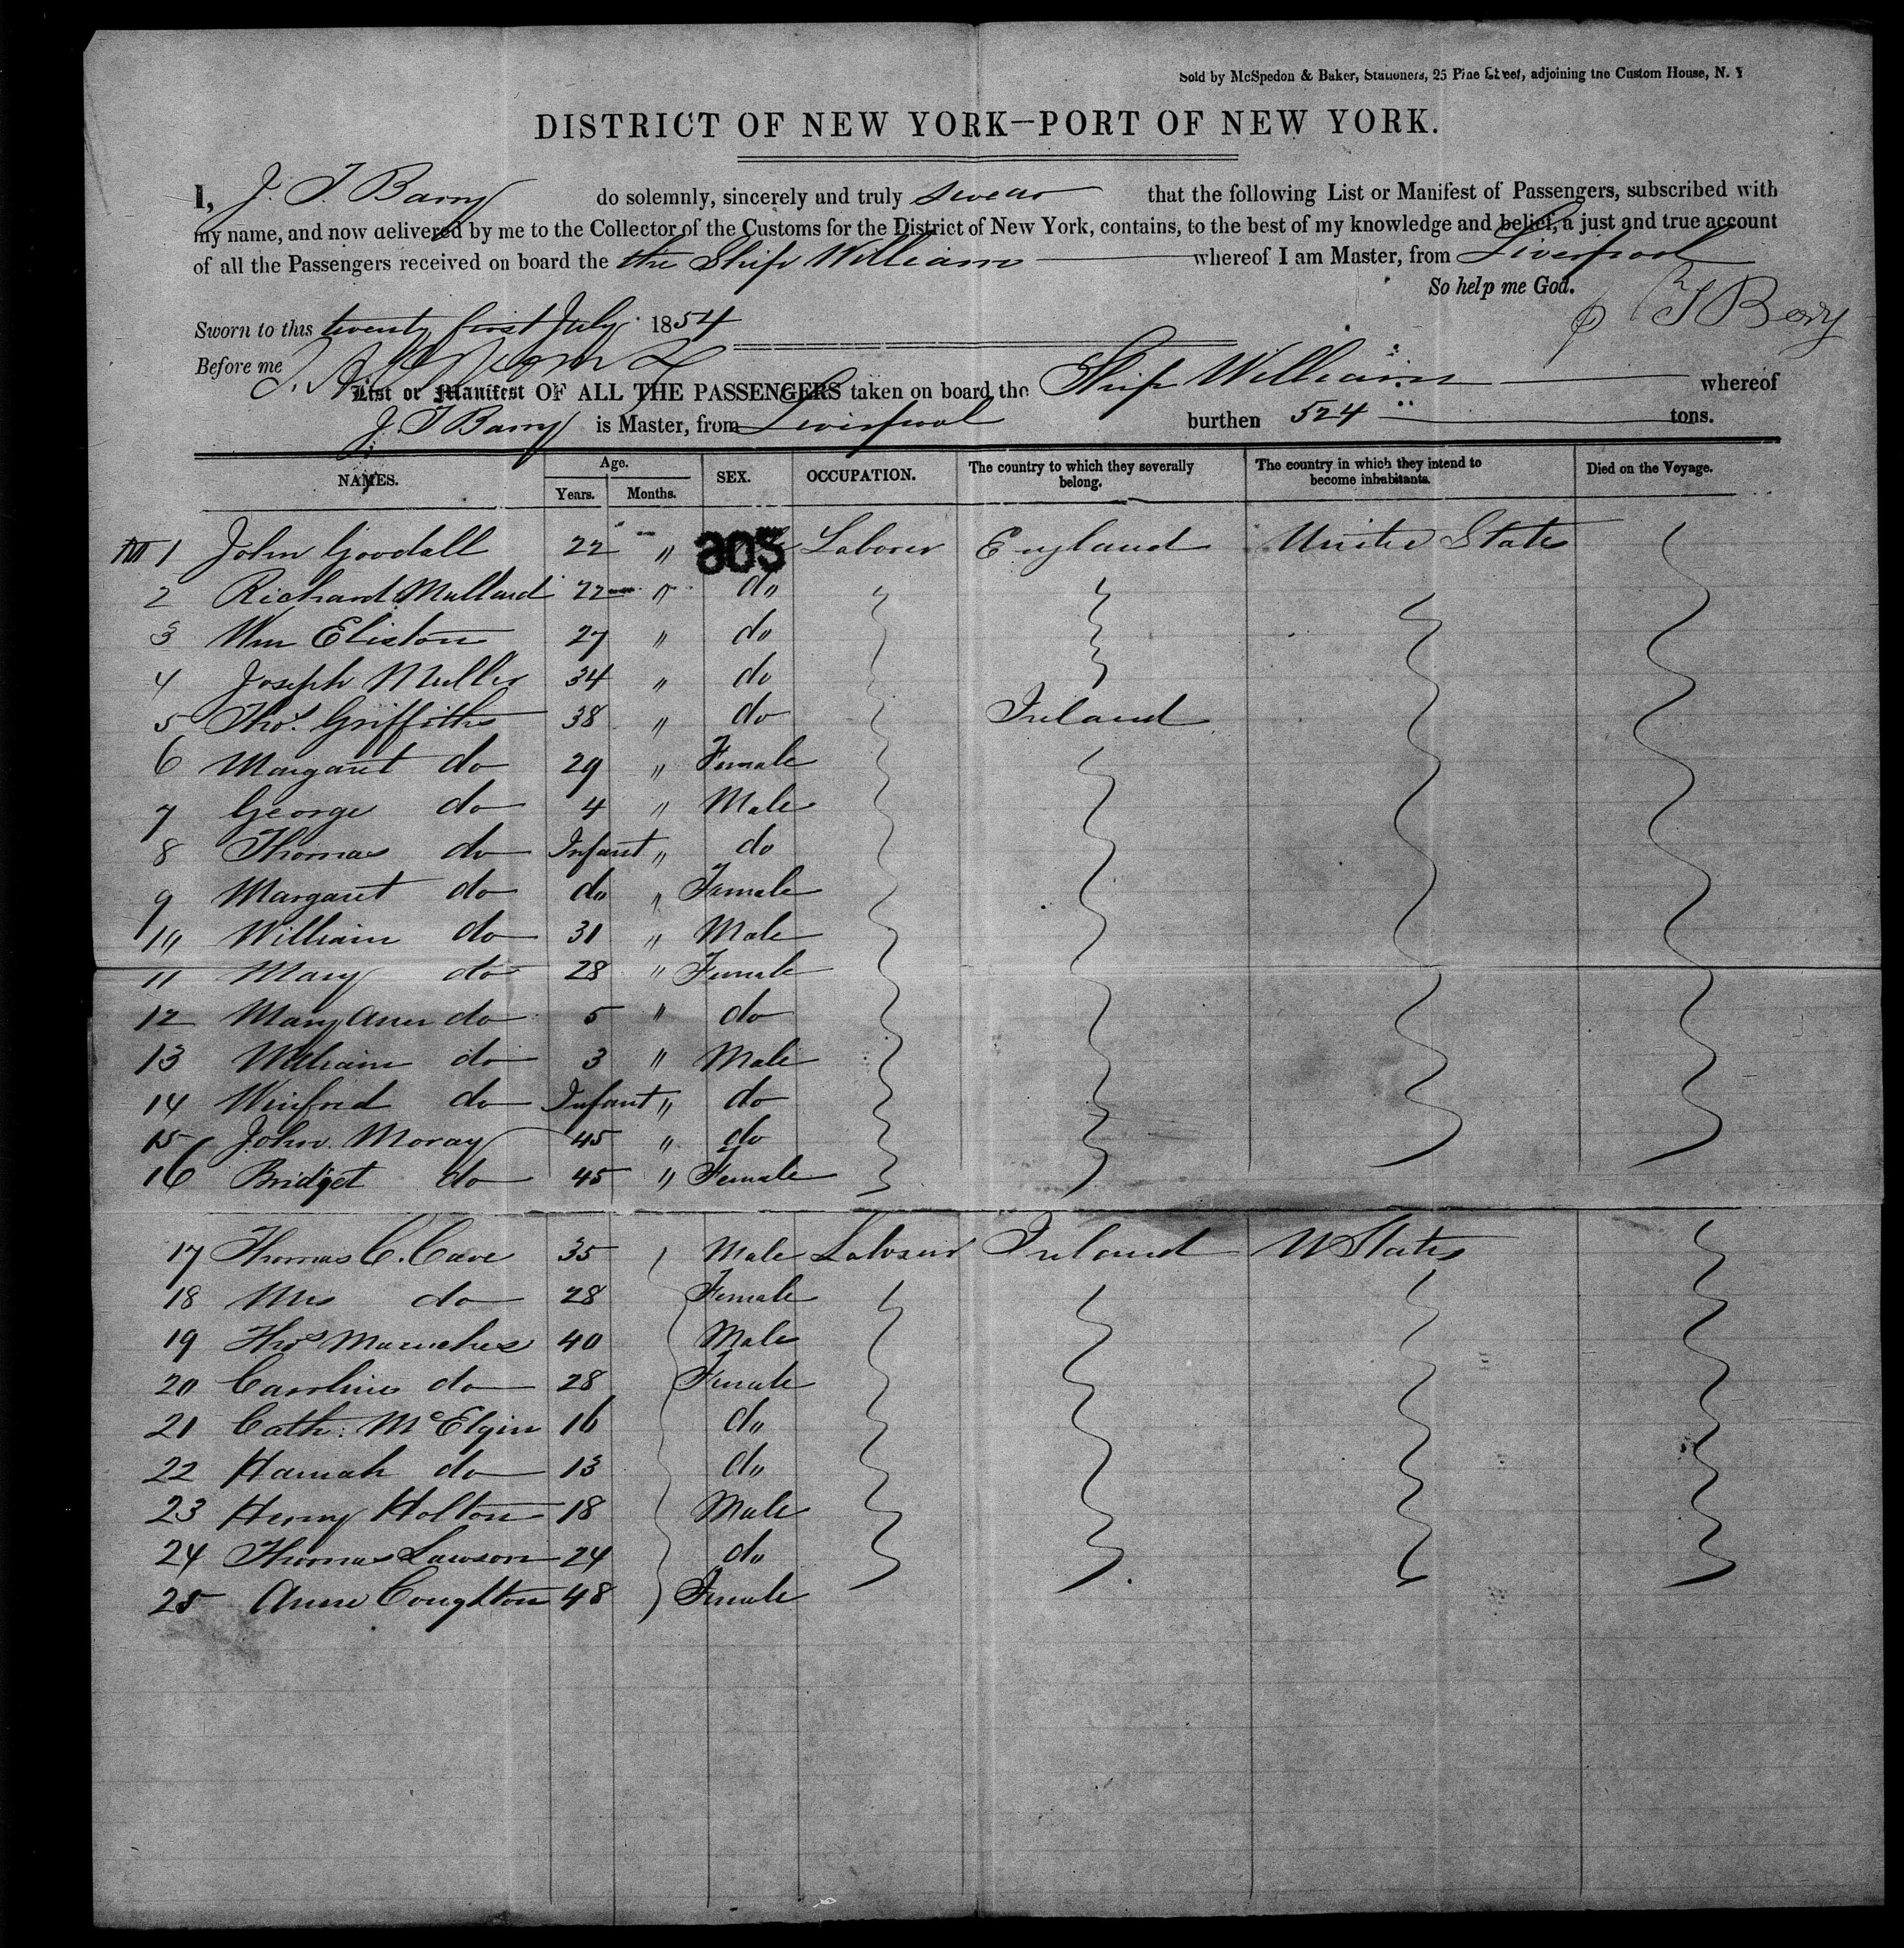 Sold by McSpedon & Baker, Stationers, 25 Pine Street, adjoining the Custom House, N. Y
DISTRICT OF NEW YORK—PORT OF NEW YORK.
I, J. T. Barry do solemnly, sincerely and truly swear that the following List or Manifest of Passengers, subscribed with
my name, and now delivered by me to the Collector of the Customs for the District of New York, contains, to the best of my knowledge and belief, a just and true account
of all the Passengers received on board the the Ship William whereof I am Master, from Liverpool
So help me God.
Sworn to this twenty first July 1854
J T Barry
Before me
List or Manifest OF ALL THE PASSENGERS taken on board the Ship William whereof
J. T Barry is Master, from Liverpool burthen 524 tons.
NAMES. Age. Years. Months. SEX. OCCUPATION. The country to which they severally belong. The country in which they intend to become inhabitants. Died on the Voyage.
1 John Goodall 22 " 803 Laborer England United States
2 Richard Mullard 22 " do
3 Wm Eliston 27 " do
4 Joseph Muller 34 " do
5 Thos. Griffiths 38 " do Ireland
6 Margaret do 29 " Female
7 George do 4 " Male
8 Thomas do Infant " do
9 Margaret do do " Female
10 William do 31 " Male
11 Mary do 28 " Female
12 Mary Ann do 5 " do
13 William do 3 " Male
14 Winfred do Infant " do
15 John Moray 45 " do
16 Bridget do 45 " Female
17 Thomas C. Cave 35 Male Laborer Ireland U States
18 Mrs do 28 Female
19 Thos 40 Male
20 Caroline do 28 Female
21 Cath: McElgin 16 do
22 Hannah do 13 do
23 Henry Holton 18 Male
24 Thomas Lawson 24 do
25 Anne Coughton 48 Female